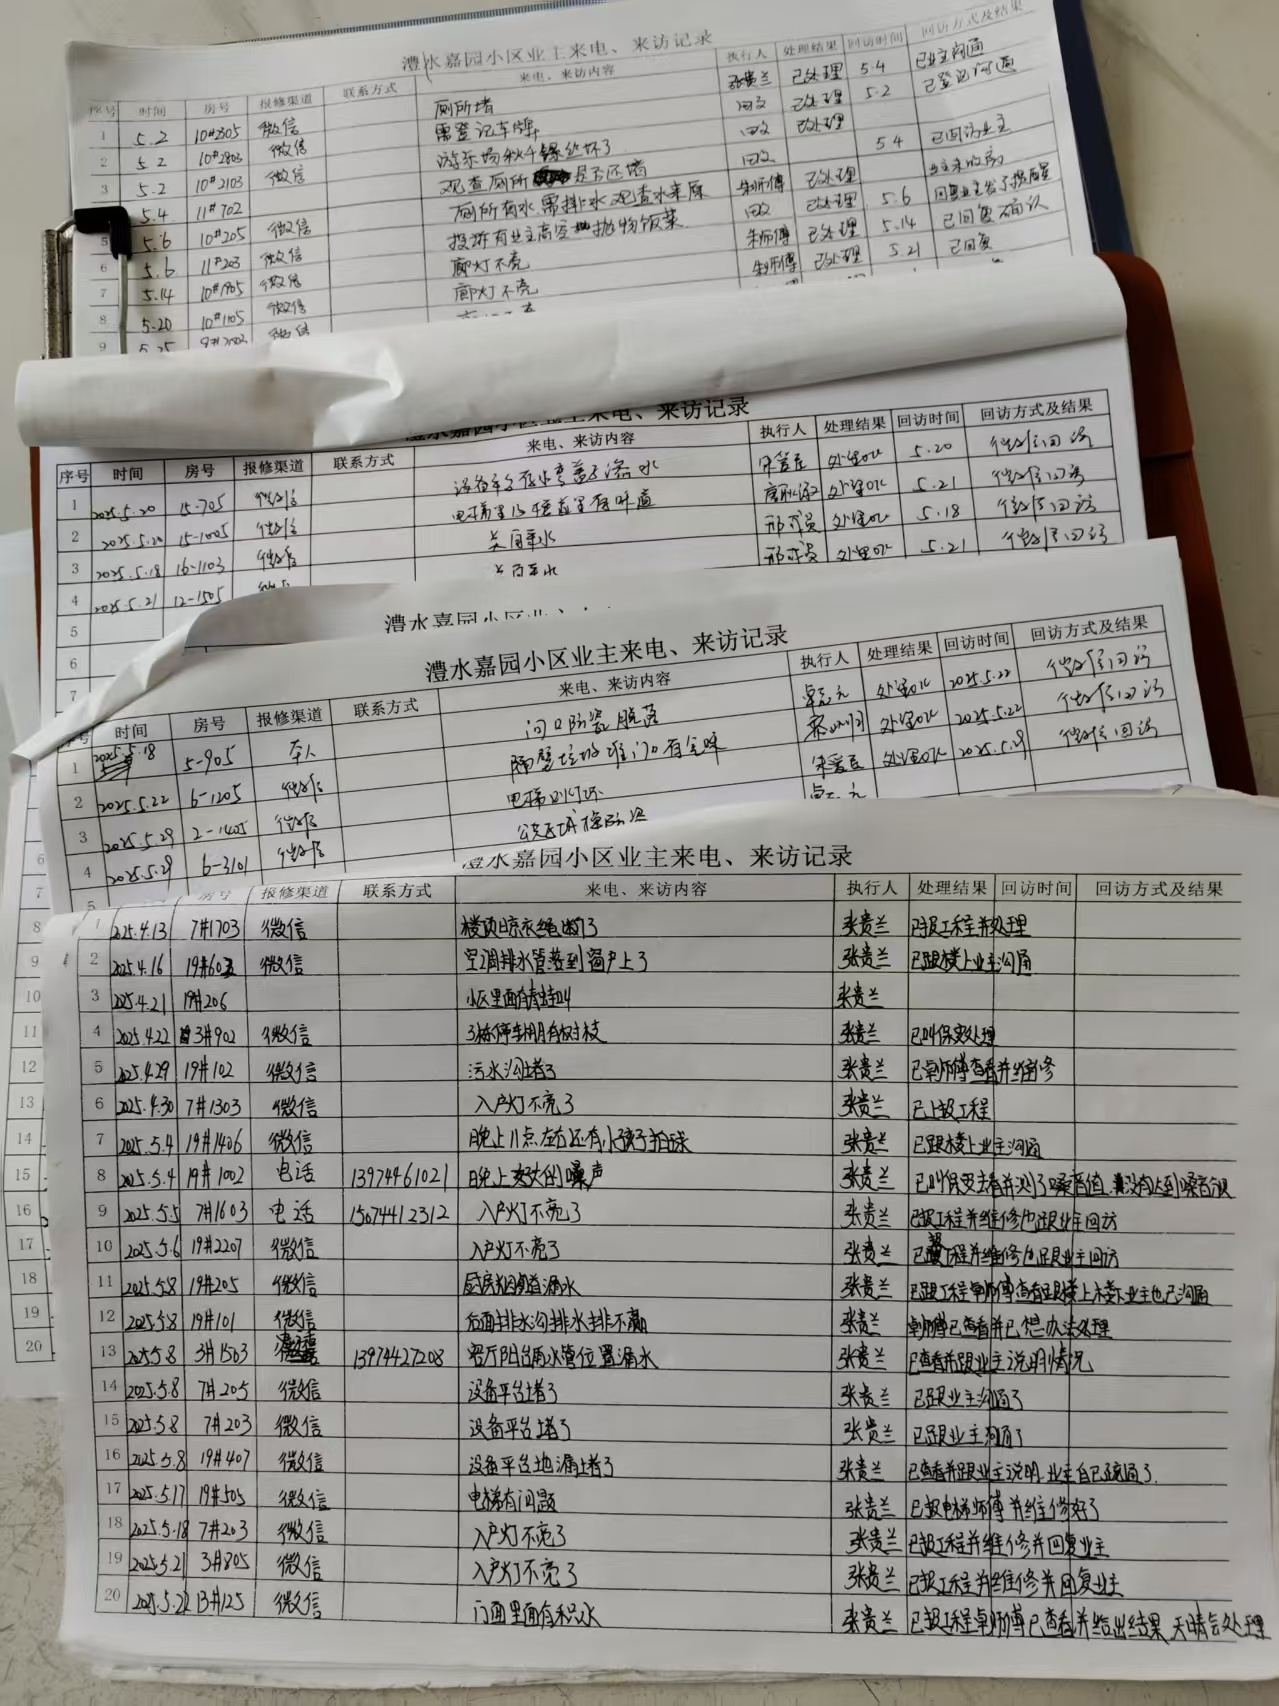 澧水嘉园小区业主来电、来访记录
序号 时间 房号 报修渠道 联系方式 来电、来访内容 执行人 处理结果 回访时间 回访方式及结果
1 5.2 10#2305 微信 厕所堵 张贵兰 已处理 5.4
2 5.2 10#2803 微信 需登记车牌 已处理 5.2
3 5.2 10#2103 微信 游乐场秋千 坏了 已处理
5.4 11#702 观查厕所 是否还堵 5.4 已回访业主
5 5.6 10#205 微信 厕所有水,需排水,观查水来原 朱师傅 已处理
6 5.6 11#203 微信 投诉有业主高空抛物饭菜 已处理 5.6
7 5.14 10#1905 微信 廊灯不亮 朱师傅 已处理 5.14 已回复确认
8 5.20 10#1105 微信 廊灯不亮 朱师傅 已处理 5.21 已回复
9 5.25 微信
澧水嘉园小区业主来电、来访记录
序号 时间 房号 报修渠道 联系方式 来电、来访内容 执行人 处理结果 回访时间 回访方式及结果
1 2025.5.20 15-705 微信 水 宋爱臣 处理OK 5.20 微信回访
2 2025.5.20 15-1005 微信 电梯里 有味道 处理OK 5.21 微信回访
3 2025.5.18 16-1103 微信 处理OK 5.18 微信回访
4 2025.5.21 12-1505 处理OK 5.21 微信回访
5
6
7
澧水嘉园小区业主来电、来访记录
序号 时间 房号 报修渠道 联系方式 来电、来访内容 执行人 处理结果 回访时间 回访方式及结果
1 2025.5.18 5-905 本人 门口防瓷脱落 处理OK 2025.5.22 微信回访
2 2025.5.22 6-1205 微信 隔壁垃圾堆门口有 味 处理OK 2025.5.22 微信回访
3 2025.5.29 2-1405 微信 电梯 灯坏 宋爱臣 处理OK 2025.5.29 微信回访
4 2025.5.29 6-3101 微信 公共区域
5
澧水嘉园小区业主来电、来访记录
房号 报修渠道 联系方式 来电、来访内容 执行人 处理结果 回访时间 回访方式及结果
1 2025.4.13 7#1703 微信 楼顶晾衣绳断了 张贵兰 已报工程并处理
2 2025.4.16 19#603 微信 空调排水管落到窗户上了 张贵兰 已跟楼上业主沟通
3 2025.4.21 19#206 小区里面有 叫 张贵兰
4 2025.4.22 3#902 微信 3栋停车棚有树枝 张贵兰 已叫保安处理
5 2025.4.29 19#102 微信 污水沟堵了 张贵兰 已 师傅查看并维修
6 2025.4.30 7#1303 微信 入户灯不亮了 张贵兰 已上报工程
7 2025.5.4 19#1406 微信 晚上11点左右还有小孩子拍球 张贵兰 已跟楼上业主沟通
8 2025.5.4 19#1002 电话 13974461021 晚上 大的噪声 张贵兰 已叫保安去看并测了噪音值,没有达到噪音
9 2025.5.5 7#1603 电话 15074412312 入户灯不亮了 张贵兰 已报工程并维修也跟业主回访
10 2025.5.6 19#2207 微信 入户灯不亮了 张贵兰 已报工程并维修也跟业主回访
11 2025.5.8 19#205 微信 厨房烟道漏水 张贵兰 已跟工程卓师傅查看跟楼上楼下业主也已沟通
12 2025.5.8 19#101 微信 后面排水沟排水排不赢 张贵兰 卓师傅已查看并已想办法处理
13 2025.5.8 3#1503 13974427208 客厅阳台雨水管位置漏水 张贵兰 已查看并跟业主说明情况
14 2025.5.8 7#205 微信 设备平台堵了 张贵兰 已跟业主沟通了
15 2025.5.8 7#203 微信 设备平台堵了 张贵兰 已跟业主沟通了
16 2025.5.8 19#407 微信 设备平台地漏堵了 张贵兰 已查看并跟业主说明,业主自己疏通了.
17 2025.5.17 19#505 微信 电梯有问题 张贵兰 已报电梯师傅并维修好了
18 2025.5.18 7#203 微信 入户灯不亮了 张贵兰 已报工程并维修并回复业主
19 2025.5.21 3#805 微信 入户灯不亮了 张贵兰 已报工程并维修并回复业主
20 2025.5.22 13#125 微信 门面里面有积水 张贵兰 已报工程卓师傅已查看并给出结果,天晴会处理